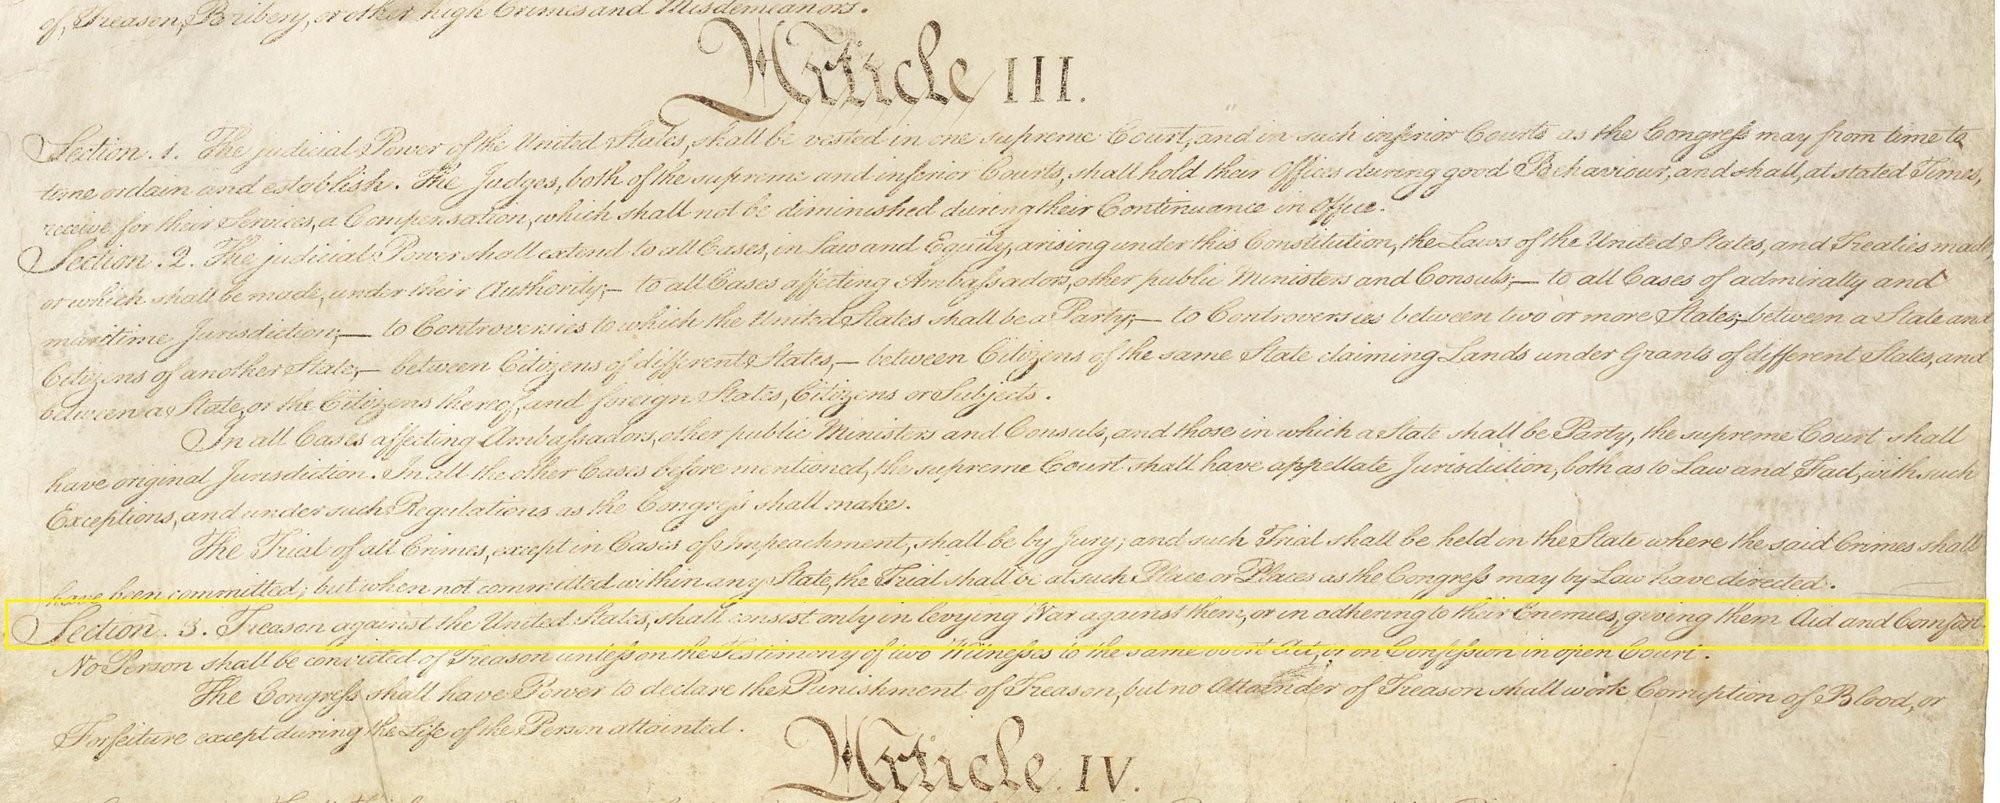 of, Treason, Bribery, or other high Crimes and Misdemeanors.
Article III.
Section. 1. The judicial Power of the United States, shall be vested in one supreme Court, and in such inferior Courts as the Congress may from time to
time ordain and establish. The Judges, both of the supreme and inferior Courts, shall hold their Offices during good Behaviour, and shall, at stated Times,
receive for their Services, a Compensation, which shall not be diminished during their Continuance in Office.
Section. 2. The judicial Power shall extend to all Cases, in Law and Equity, arising under this Constitution, the Laws of the United States, and Treaties made,
or which shall be made, under their Authority;— to all Cases affecting Ambassadors, other public Ministers and Consuls;— to all Cases of admiralty and
maritime Jurisdiction;— to Controversies to which the United States shall be a Party;— to Controversies between two or more States;—between a State and
Citizens of another State,— between Citizens of different States,— between Citizens of the same State claiming Lands under Grants of different States, and
between a State, or the Citizens thereof, and foreign States, Citizens or Subjects.
In all Cases affecting Ambassadors, other public Ministers and Consuls, and those in which a State shall be Party, the supreme Court shall
have original Jurisdiction. In all the other Cases before mentioned, the supreme Court shall have appellate Jurisdiction, both as to Law and Fact, with such
Exceptions, and under such Regulations as the Congress shall make.
The Trial of all Crimes, except in Cases of Impeachment, shall be by Jury; and such Trial shall be held in the State where the said Crimes shall
have been committed; but when not committed within any State, the Trial shall be at such Place or Places as the Congress may by Law have directed.
Section. 3. Treason against the United States, shall consist only in levying War against them, or in adhering to their Enemies, giving them Aid and Comfort.
No Person shall be convicted of Treason unless on the Testimony of two Witnesses to the same overt Act, or on Confession in open Court.
The Congress shall have Power to declare the Punishment of Treason, but no Attainder of Treason shall work Corruption of Blood, or
Forfeiture except during the Life of the Person attainted.
Article. IV.